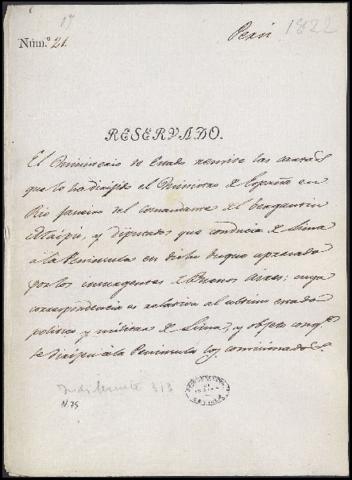 17
Núm.º 21.
Perú 1822
RESERVADO.
El Ministerio de Estado remite las cartas
que le ha dirigido el Ministro de España en
Rio Janeiro del comandante del bergantin
Maipú, y Diputados que conducia de Lima
á la Peninsula en dicho buque apresado
por los insurgentes de Buenos Aires; cuya
correspondencia es relativa al ultimo estado
politico y militar de Lima, y objeto conq.e
se dirigen á la Peninsula los comisionados.
Indiferente 313
N. 75